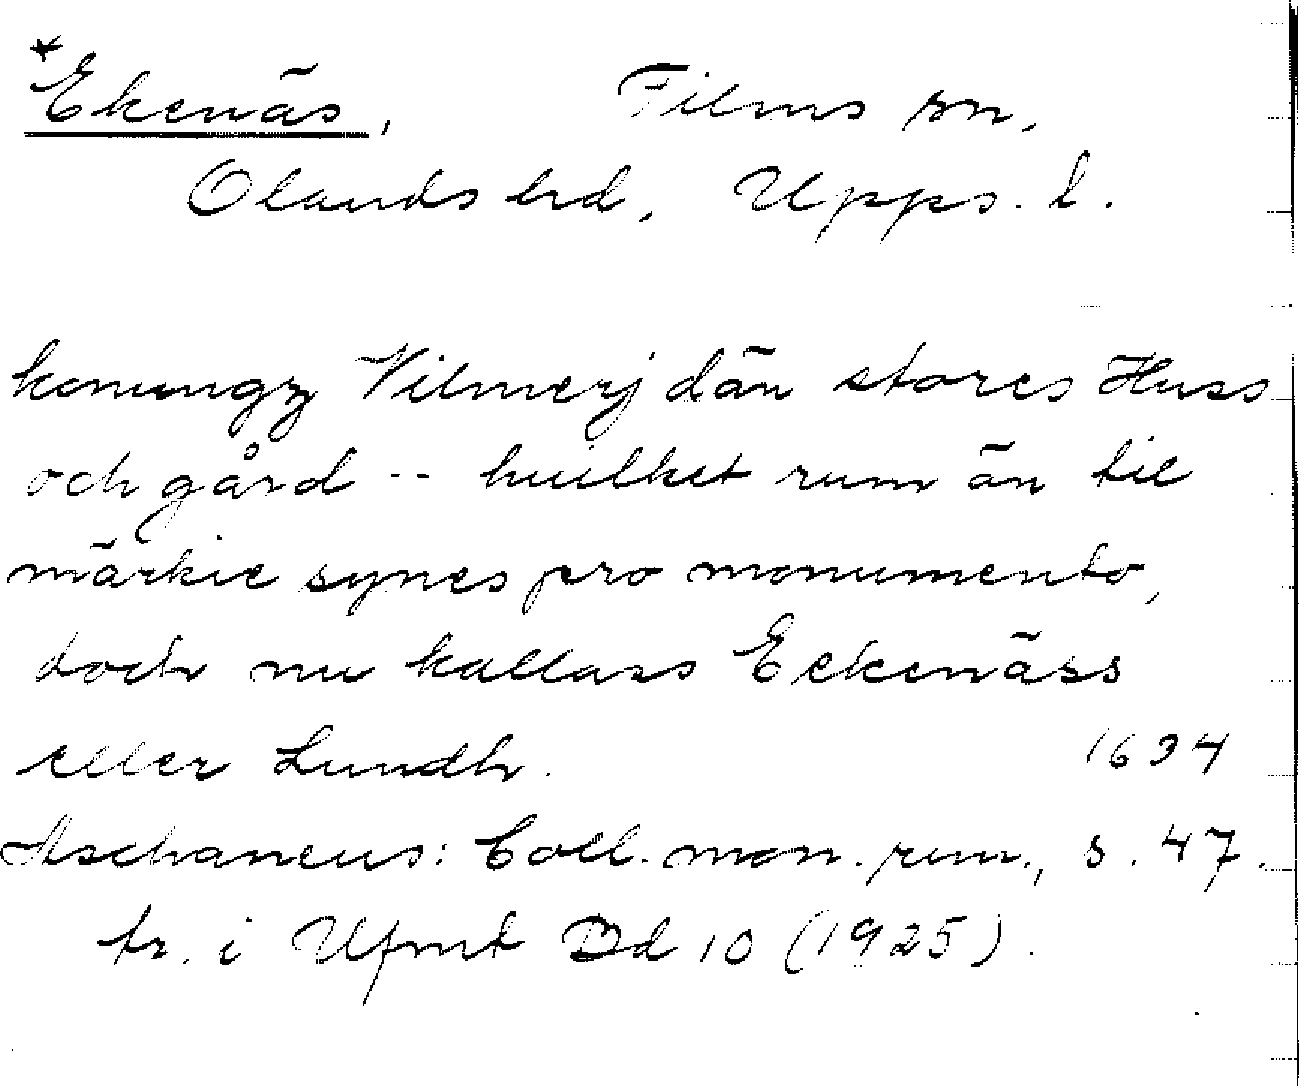 *Ekenäs, Films sn,
Olands hd, Upps. l.
konungz Vilmerj dän stores Huss
och gård -- huilket rum än til
märkie synes pro monumento,
doch nu kallass Eekenäss
eller Lundh. 1634
Aschaneus: Coll. mon. run., s. 47.
tr. i Ufmt Bd 10 (1925).